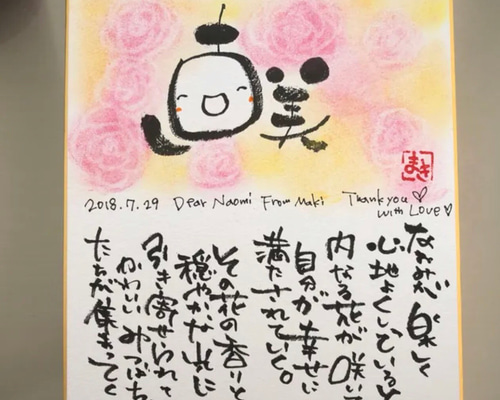 直美
まき
2018.7.29 Dear Naomi From Maki Thank you♡
with Love♡
なおみが 楽しく
心地よくしている
内なる花が咲い
自分が幸せに
満たされていく。
その花の香りと
穏やかな光に
引き寄せられて
かわいい みつばち
たちが集まってく